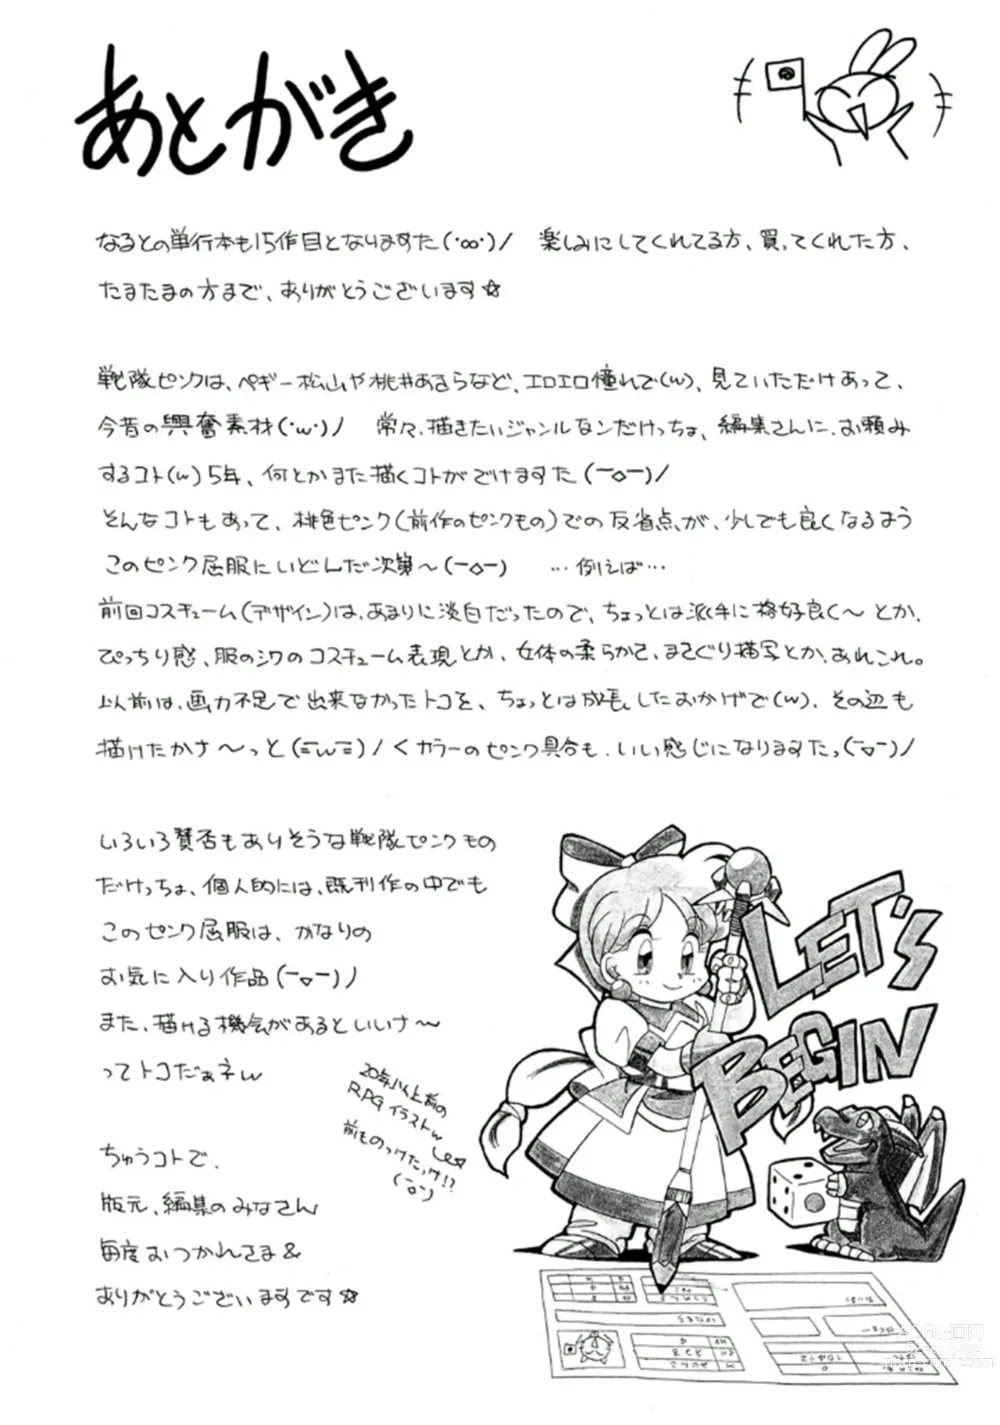 あとがき
なるとの単行本も15作目となりますた(・ω・)ノ 楽しみにしてくれてる方、買ってくれた方、
たまたまの方まで、ありがとうございます☆
戦隊ピンクは、ペギー松山や桃井あきらなど、エロエロ憧れで(w)、見ていただけあって、
今昔の興奮素材(・w・)ノ 常々、描きたいジャンルなンだけっちょ、編集さんに、お頼み
するコト(w)5年、何とかまた描くコトがでけますた(￣◇￣)ノ
そんなコトもあって、桃色ピンク(前作のピンクもの)での反省点が、少しでも良くなるよう
このピンク屈服にいどんだ次第～(￣◇￣) …例えば…
前回コスチューム(デザイン)は、あまりに淡白だったので、ちょっとは派手に格好良く～とか、
ぴっちり感、服のシワのコスチューム表現とか、女体の柔らかさ、まさぐり描写とか、あれこれ。
以前は、画力不足で出来なかったトコを、ちょっとは成長したおかげで(w)、その辺も
描けたかナ～っと(￣w￣)ノ<カラーのピンク具合も、いい感じになりますたっ(￣▽￣)ノ
いろいろ賛否もありそうな戦隊ピンクもの
だけっちょ、個人的には、既刊作の中でも
このピンク屈服は、かなりの
お気に入り作品(￣▽￣)ノ
また、描ける機会があるといいナ～
ってトコだぁネw
20年以上前の
RPGイラストw
前ものっけたっけ!?
(￣◇￣)
ちゅうコトで、
版元、編集のみなさん
毎度おつかれさま&
ありがとうございますです☆
LET'S
BEGIN